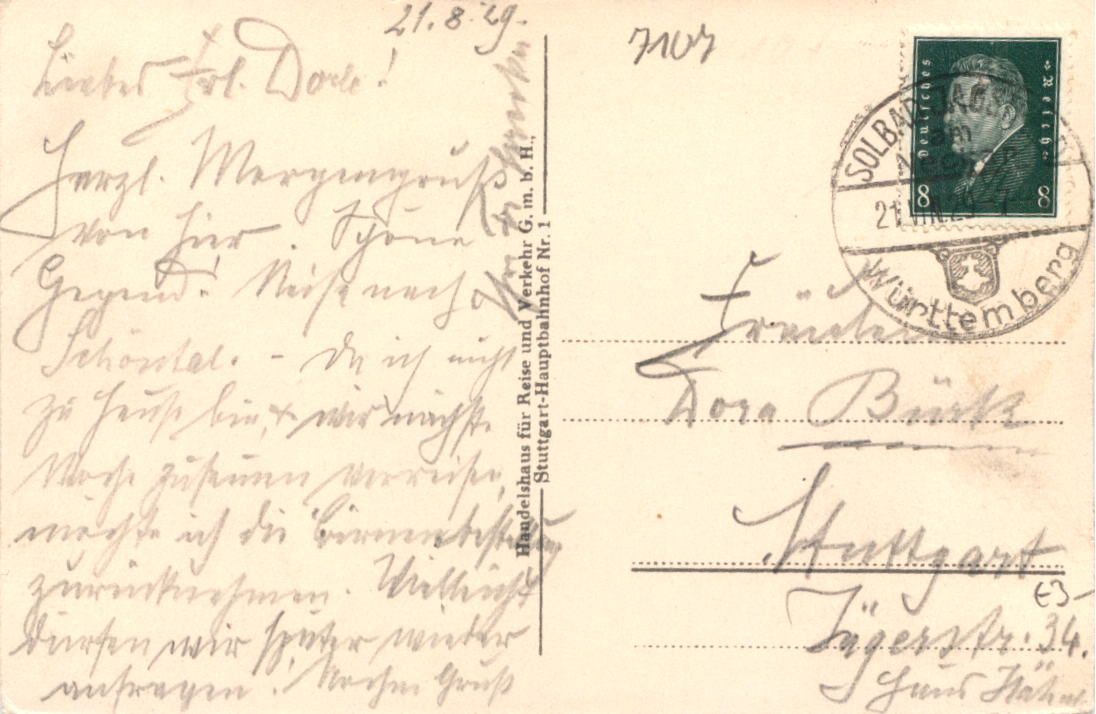 21.8.29.
Liebes Frl. Dorle!
Herzl. Morgengruß
von hier. Schöne
Gegend! Reise nach
Schöntal. - Da ich nicht
zu Hause bin, & wir nächste
Woche zusammen verreisen,
möchte ich die Birnenbestellung
zurücknehmen. Vielleicht
dürfen wir später wieder
anfragen. Nochm. Gruß
Handelshaus für Reise und Verkehr G. m. b. H.,
Stuttgart-Hauptbahnhof Nr. 1
7107
Deutsches Reich
8 8
SOLBAD JAGST
am
21.VIII.29
Württemberg
Fräulein
Dora Bürk
Stuttgart
€3-
Jägerstr. 34.
Haus